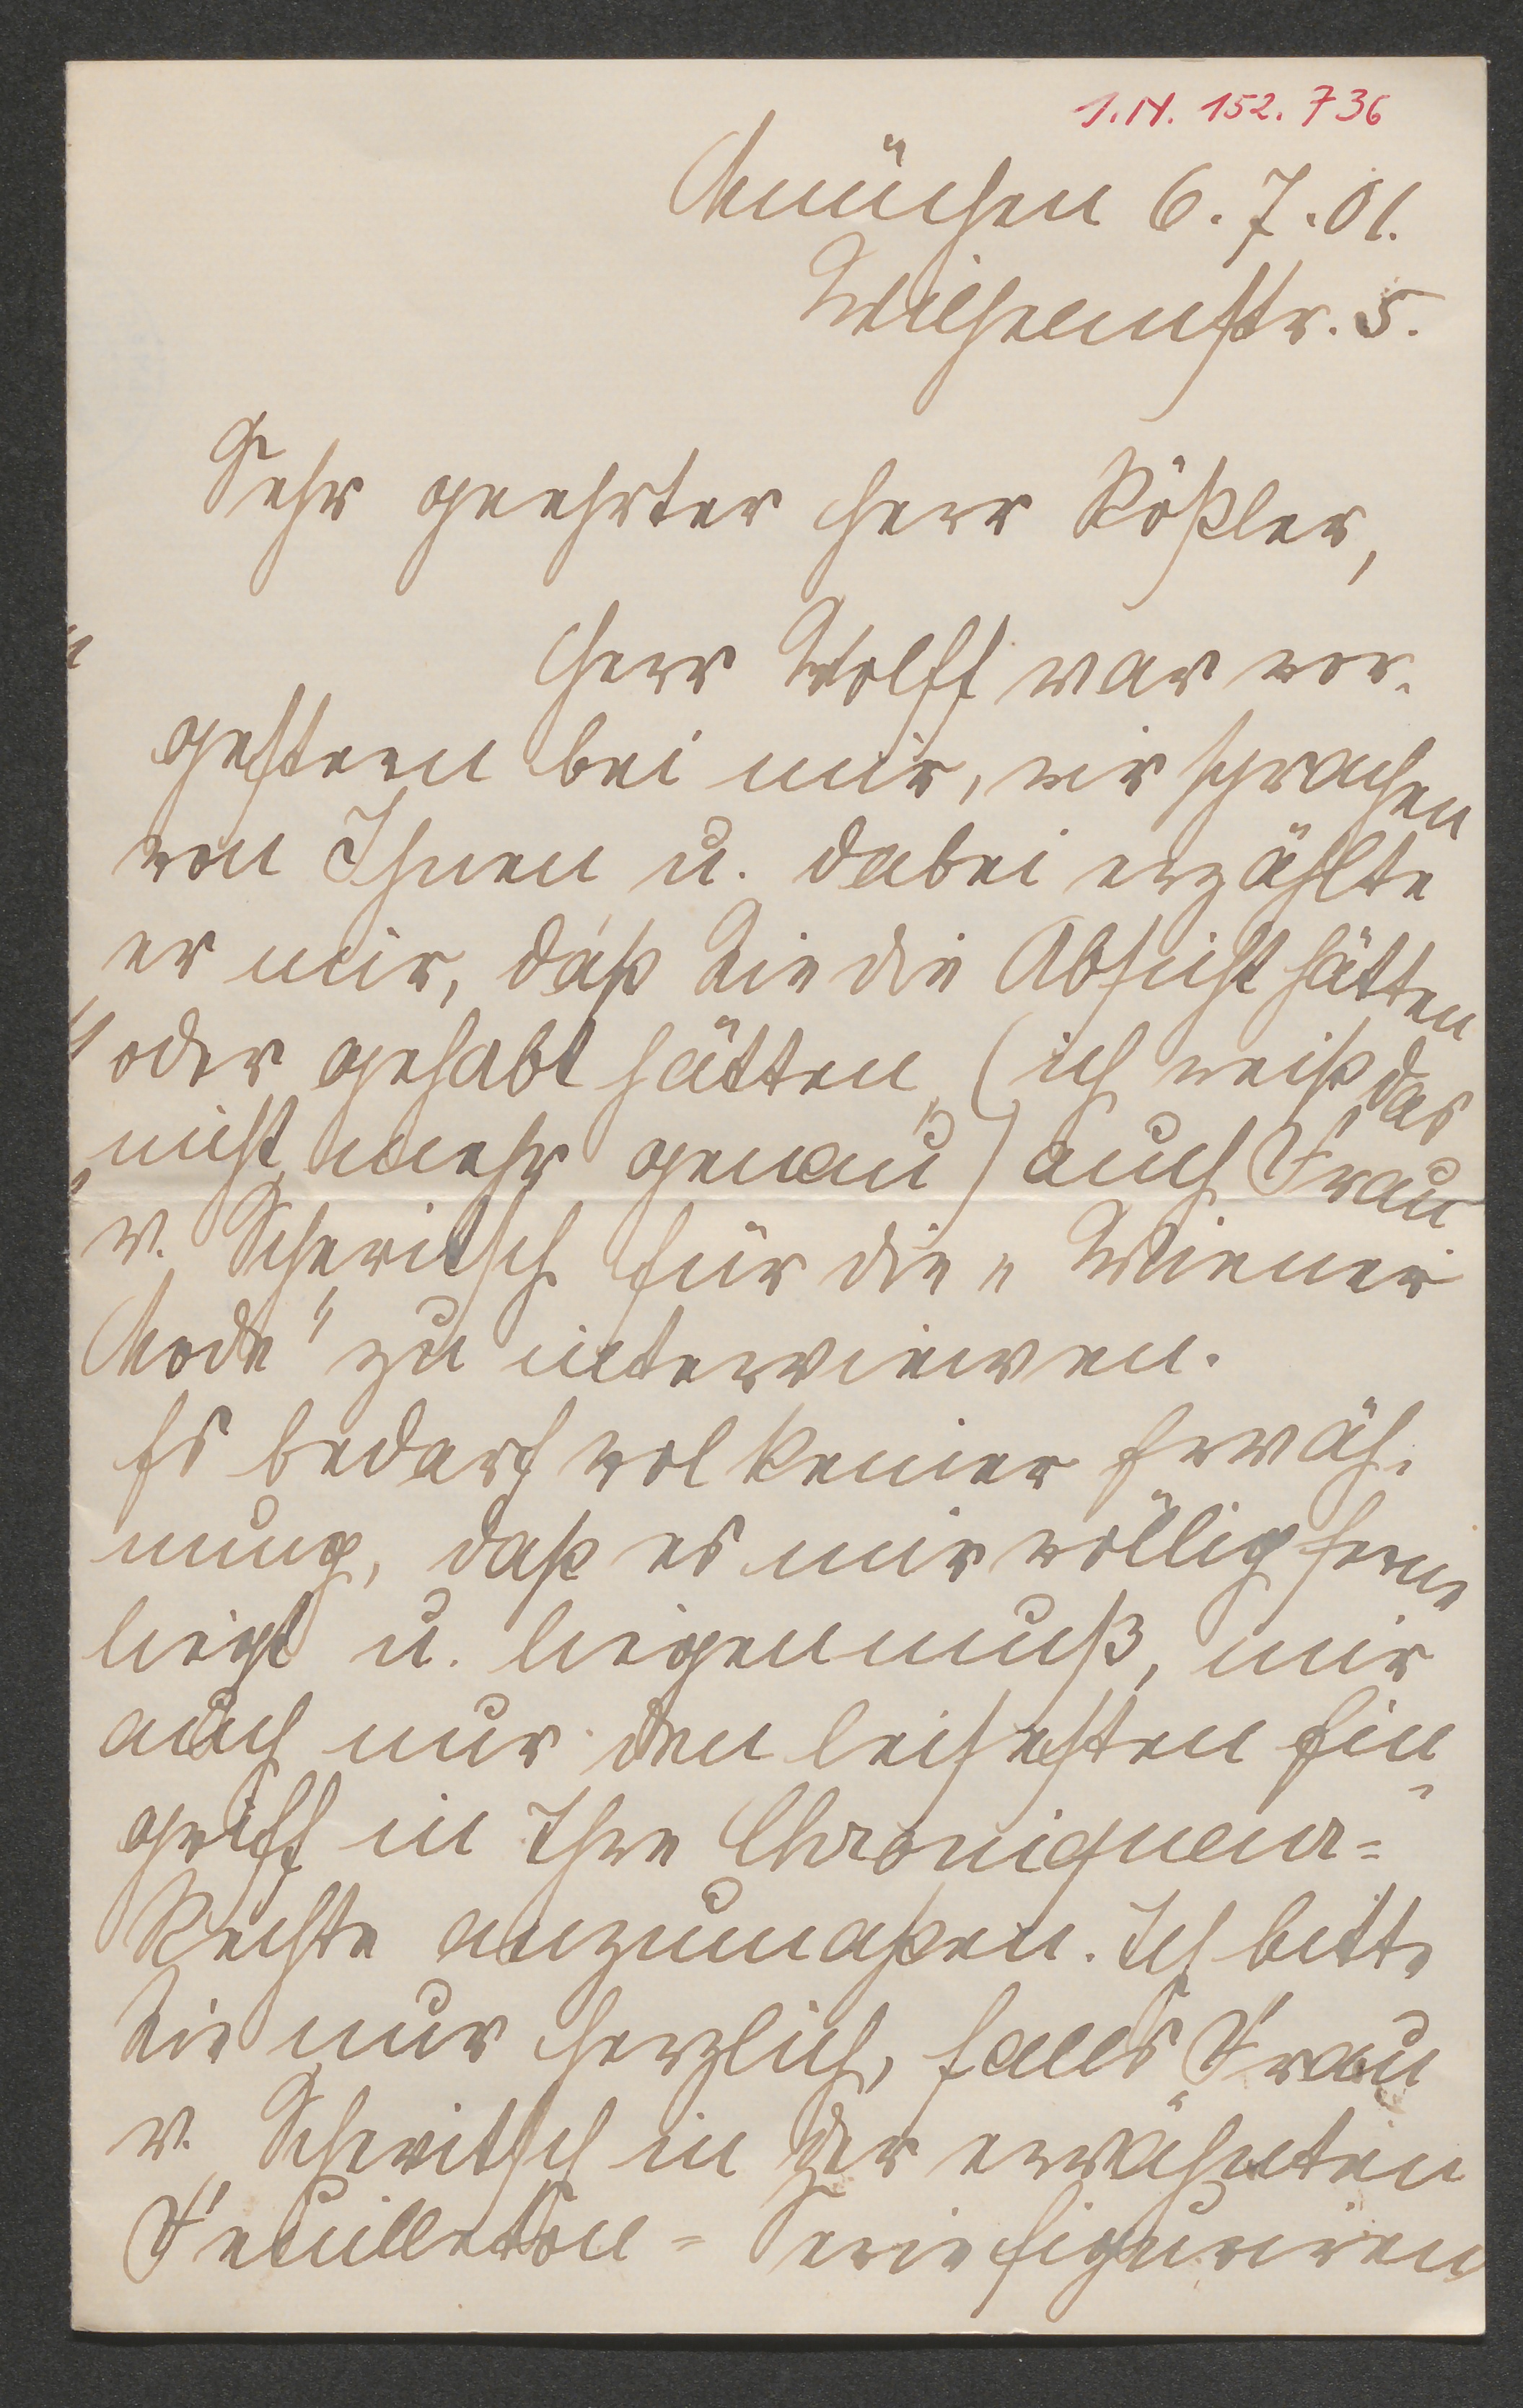 I.N. 152.736
München 6.7.01.
Wilhelmstr. 5.
Sehr geehrter Herr Rößler,
Herr Wolff war vor-
gestern bei mir, wir sprachen
von Ihnen u. dabei erzählte
er mir, daß Sie die Absicht hätten
oder gehabt hätten (ich weiß das
nicht mehr genau) auch Frau
v. Schewitsch für die „Wiener
Mode" zu interviewen.
Es bedarf wol keiner Erwäh-
nung, daß es mir völlig ferne
liegt u. liegen muß, mir
auch nur den leisesten Ein-
griff in Ihre Chroniqueur-
Rechte anzumaßen. Ich bitte
Sie nur herzlich, falls Frau
v. Schewitsch in der erwähnten
Feuilleton-Serie figuriren